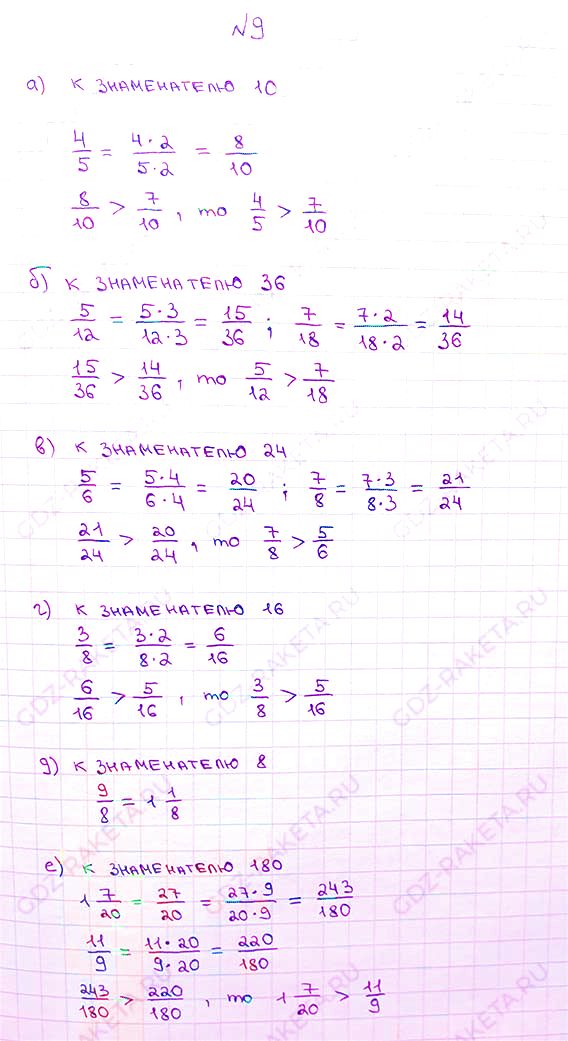 №9
а) к знаменателю 10
4/5 = 4·2/5·2 = 8/10
8/10 > 7/10, то 4/5 > 7/10
б) к знаменателю 36
5/12 = 5·3/12·3 = 15/36; 7/18 = 7·2/18·2 = 14/36
15/36 > 14/36, то 5/12 > 7/18
в) к знаменателю 24
5/6 = 5·4/6·4 = 20/24; 7/8 = 7·3/8·3 = 21/24
21/24 > 20/24, то 7/8 > 5/6
г) к знаменателю 16
3/8 = 3·2/8·2 = 6/16
6/16 > 5/16, то 3/8 > 5/16
д) к знаменателю 8
9/8 = 1 1/8
е) к знаменателю 180
1 7/20 = 27/20 = 27·9/20·9 = 243/180
11/9 = 11·20/9·20 = 220/180
243/180 > 220/180, то 1 7/20 > 11/9
GDZ-RAKETA.RU